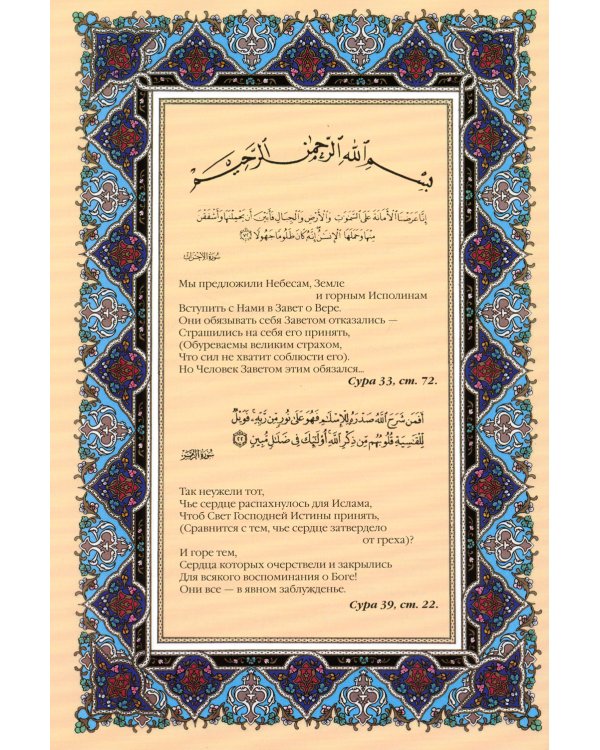 بسم الله الرحمن الرحيم
إنا عرضنا الأمانة على السموت والأرض والجبال فأبين أن يحملنها وأشفقن
منها وحملها الإنسن إنه كان ظلوما جهولا ﴿٧٢﴾
سورة الاحزاب
Мы предложили Небесам, Земле
и горным Исполинам
Вступить с Нами в Завет о Вере.
Они обязывать себя Заветом отказались —
Страшились на себя его принять,
(Обуреваемы великим страхом,
Что сил не хватит соблюсти его).
Но Человек Заветом этим обязался...
Сура 33, ст. 72.
أفمن شرح الله صدره للإسلم فهو على نور من ربه فويل
للقسية قلوبهم من ذكر الله أولئك في ضلل مبين ﴿٢٢﴾
سورة الزمر
Так неужели тот,
Чье сердце распахнулось для Ислама,
Чтоб Свет Господней Истины принять,
(Сравнится с тем, чье сердце затвердело
от греха)?
И горе тем,
Сердца которых очерствели и закрылись
Для всякого воспоминания о Боге!
Они все — в явном заблужденье.
Сура 39, ст. 22.